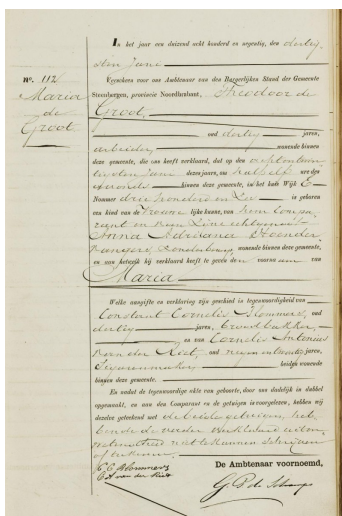 In het jaar een duizend acht honderd en negentig, den dertig-
sten Juni
Verscheen voor ons Ambtenaar van den Burgerlijken Stand der Gemeente
Nº. 112
Maria
de
Groot
Steenbergen, provincie Noordbrabant, Theodoor de
Groot,
oud dertig jaren,
arbeider, wonende binnen
deze gemeente, die ons heeft verklaard, dat op den
Juni dezes jaars, ten half elf ure des
avonds binnen deze gemeente, in het huis Wijk E
Nommer drie honderd en is geboren
een kind van de Vrouwelijke kunne, van hem Compa-
rant en van zijne echtgenoote
Anna Adriana
zonder beroep, wonende binnen deze gemeente,
en aan hetwelk hij verklaard heeft te geven den voornaam van
Maria
Welke aangifte en verklaring zijn geschied in tegenwoordigheid van
Constant Cornelis Blommers, oud
dertig jaren, broodbakker,
en van Cornelis Antonius
van der Riet, oud negenentwintig jaren,
sigarenmaker, beiden wonende
binnen deze gemeente.
En nadat de tegenwoordige akte van geboorte, door ons dadelijk in dubbel
opgemaakt, en aan den Comparant en de getuigen is voorgelezen, hebben wij
dezelve geteekend met de beide getuigen, heb-
bende de verder
niet te kunnen schrijven
of teekenen.
C C Blommers
C A van der Riet
De Ambtenaar voornoemd,